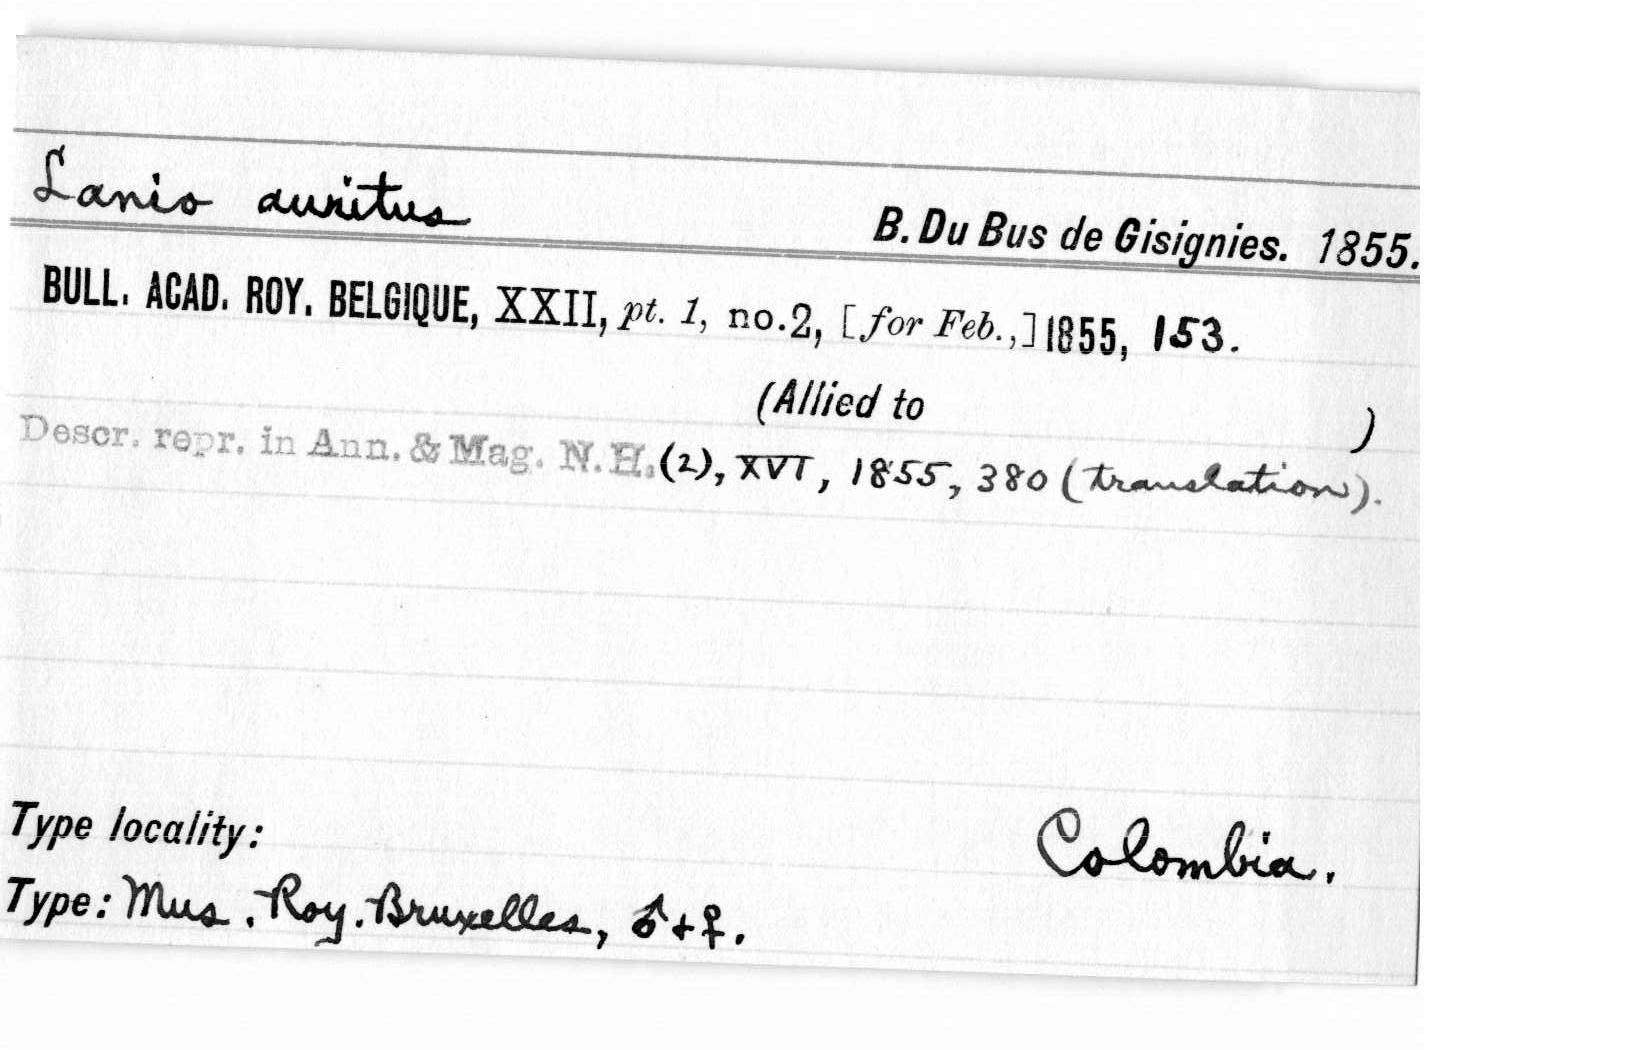 Lanio auritus B. Du Bus de Gisignies. 1855.
BULL. ACAD. ROY. BELGIQUE, XXII, pt. 1, no.2, [for Feb.,] 1855, 153.
(Allied to )
Descr. repr. in Ann. & Mag. N.H. (2), XVI, 1855, 380 (translation).
Type locality: Colombia.
Type: Mus. Roy. Bruxelles, ♂+♀.